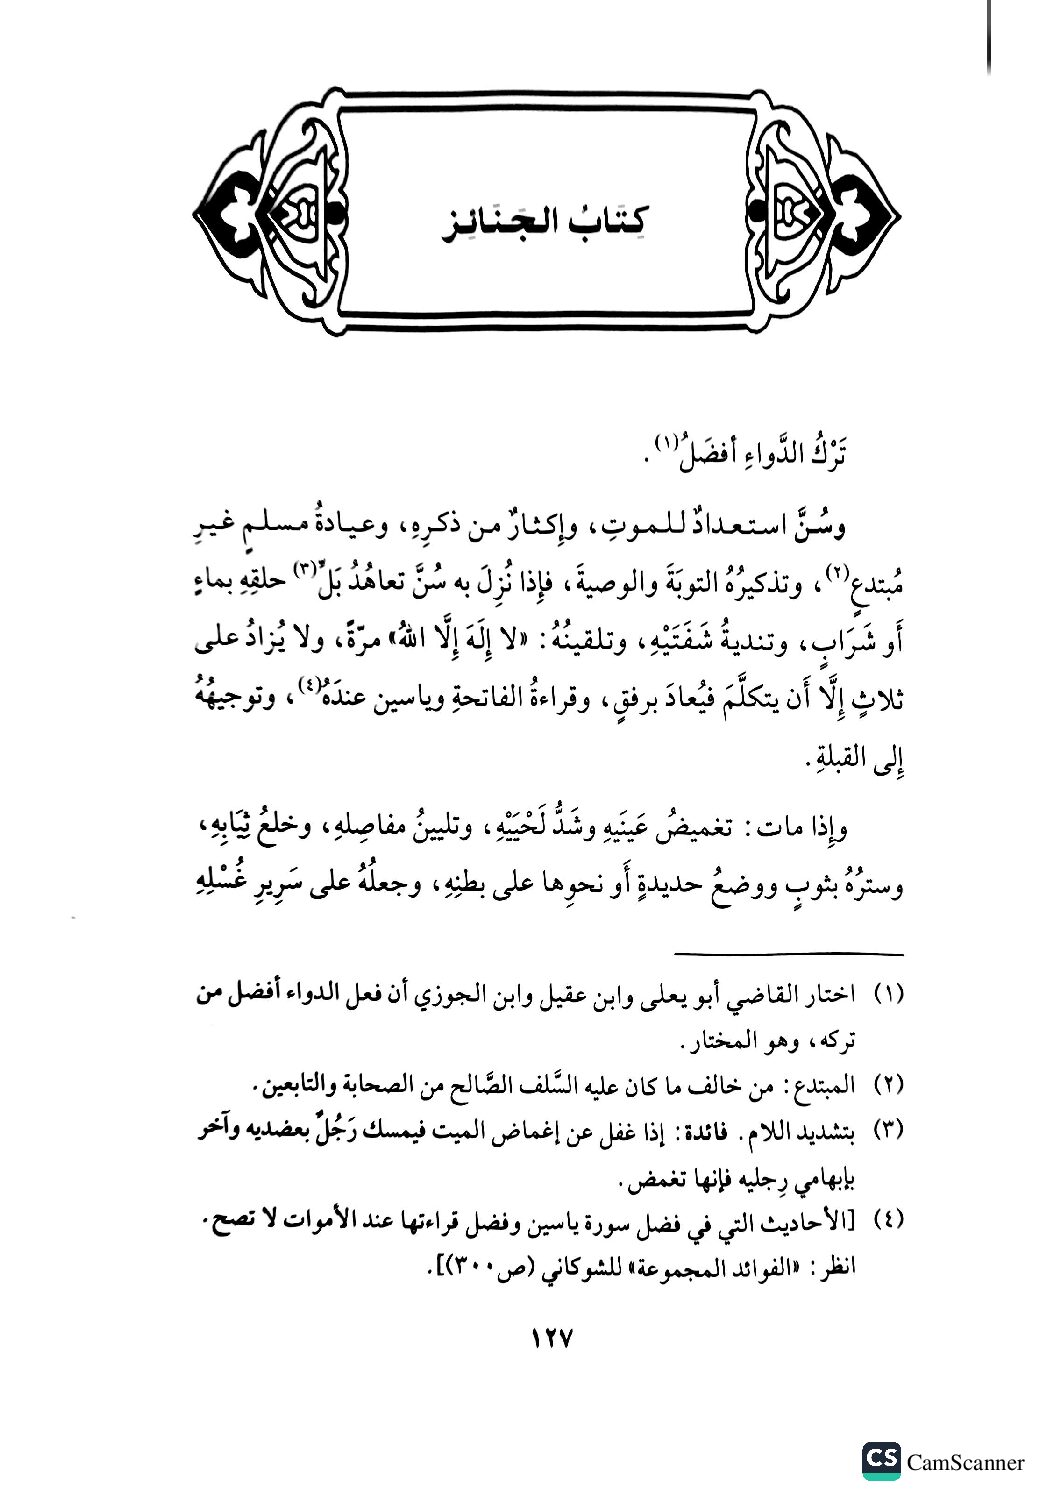 كِتَابُ الجَنَائِز
تَرْكُ الدَّواءِ أفضَلُ(١).
وسُنَّ استعدادٌ للموتِ، وإكثارٌ من ذكرِهِ، وعيادةُ مسلمٍ غيرِ
مُبتدعٍ(٢)، وتذكيرُهُ التوبَةَ والوصيةَ، فإذا نُزِلَ به سُنَّ تعاهُدُ بَلِّ(٣) حلقِهِ بماءٍ
أو شَرَابٍ، وتنديةُ شَفَتَيْهِ، وتلقينُهُ: «لا إِلَهَ إِلَّا اللهُ» مرّةً، ولا يُزادُ على
ثلاثٍ إِلَّا أَن يتكلَّمَ فيُعادَ برفقٍ، وقراءةُ الفاتحةِ وياسين عندَهُ(٤)، وتوجيهُهُ
إِلى القبلةِ.
وإِذا مات: تغميضُ عَينَيهِ وشَدُّ لَحْيَيْهِ، وتليينُ مفاصِلهِ، وخلعُ ثِيَابِهِ،
وسترُهُ بثوبٍ ووضعُ حديدةٍ أَو نحوِها على بطنِهِ، وجعلُهُ على سَرِيرِ غُسْلِهِ
(١) اختار القاضي أبو يعلى وابن عقيل وابن الجوزي أن فعل الدواء أفضل من
تركه، وهو المختار.
(٢) المبتدع: من خالف ما كان عليه السَّلف الصَّالح من الصحابة والتابعين.
(٣) بتشديد اللام. فائدة: إذا غفل عن إغماض الميت فيمسك رَجُلٌ بعضديه وآخر
بإبهامي رِجليه فإنها تغمض.
(٤) [الأحاديث التي في فضل سورة ياسين وفضل قراءتها عند الأموات لا تصح.
انظر: «الفوائد المجموعة» للشوكاني (ص٣٠٠)].
١٢٧
CS CamScanner